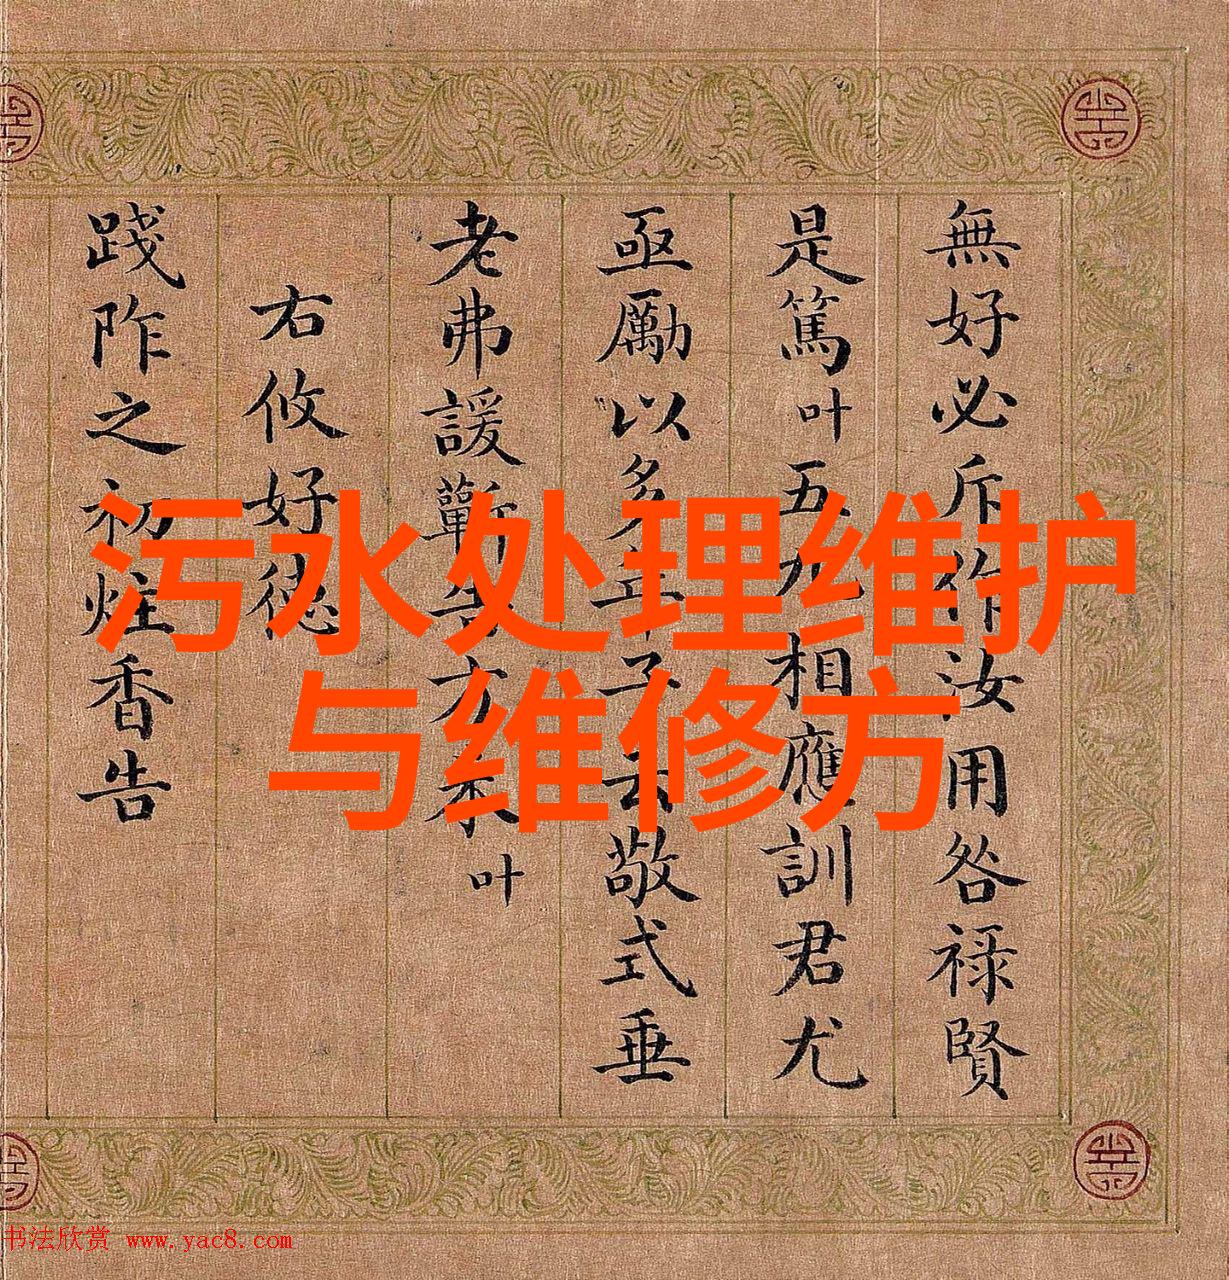 無好必斥作汝用咎祿賢
是篤叶五九相應訓君尤
亟勵以多年予云敬式垂
老弗諼蘄告方來叶
右攸好德
踐阼之初炷香告
污水处理维护
与维修方
书法欣赏 www.yac8.com